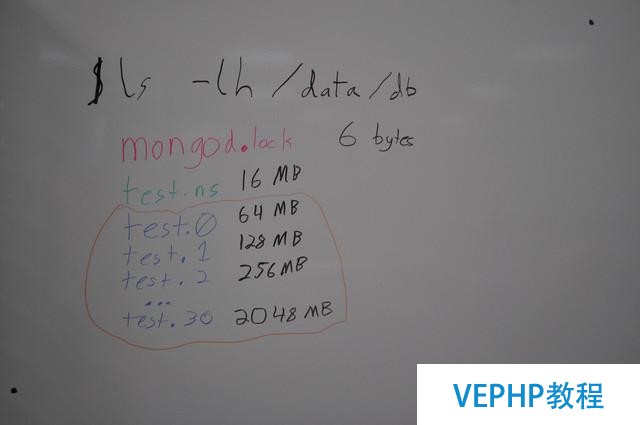 $ls -lh /data/db
mongod.lock 6 bytes
test.ns 16 MB
test.0 64 MB
test.1 128 MB
test.2 256 MB
...
test.30 2048 MB
VEPHP教程